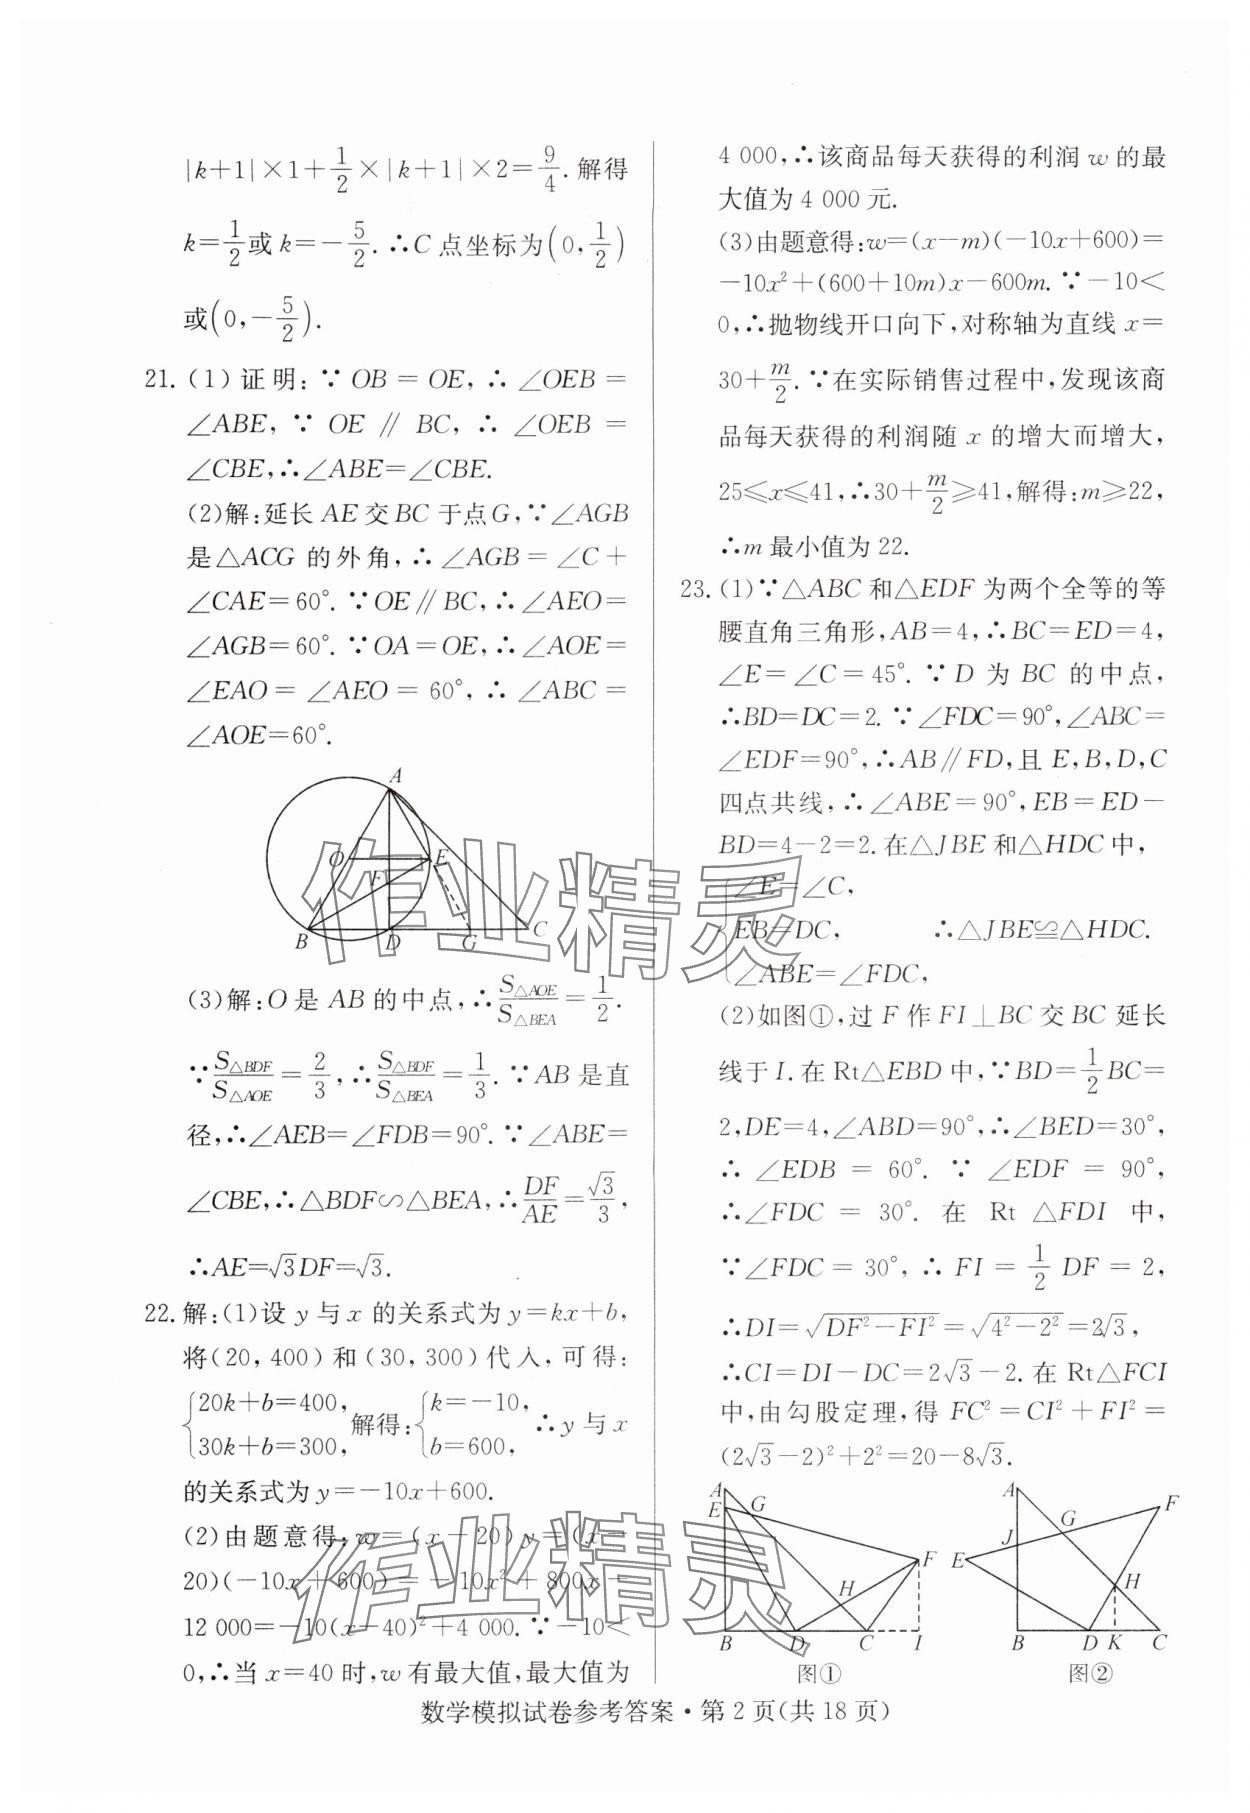 |k+1|×1+1/2×|k+1|×2=9/4.解得
k=1/2或k=-5/2.∴C点坐标为(0,1/2)
或(0,-5/2).
21.(1)证明:∵OB=OE,∴∠OEB=
∠ABE,∵OE∥BC,∴∠OEB=
∠CBE,∴∠ABE=∠CBE.
(2)解:延长AE交BC于点G,∵∠AGB
是△ACG的外角,∴∠AGB=∠C+
∠CAE=60°.∵OE∥BC,∴∠AEO=
∠AGB=60°.∵OA=OE,∴∠AOE=
∠EAO=∠AEO=60°,∴∠ABC=
∠AOE=60°.
A
O
E
F
B
D
G
C
(3)解:O是AB的中点,∴S△AOE/S△BEA=1/2.
∵S△BDF/S△AOE=2/3,∴S△BDF/S△BEA=1/3.∵AB是直
径,∴∠AEB=∠FDB=90°.∵∠ABE=
∠CBE,∴△BDF∽△BEA,∴DF/AE=√3/3,
∴AE=√3DF=√3.
22.解:(1)设y与x的关系式为y=kx+b,
将(20,400)和(30,300)代入,可得:
{20k+b=400, 30k+b=300, 解得:{k=-10, b=600, ∴y与x
的关系式为y=-10x+600.
(2)由题意得:w=(x-20)y=(x-
20)(-10x+600)=-10x²+800x-
12 000=-10(x-40)²+4 000.∵-10<
0,∴当x=40时,w有最大值,最大值为
4 000,∴该商品每天获得的利润w的最
大值为4 000元.
(3)由题意得:w=(x-m)(-10x+600)=
-10x²+(600+10m)x-600m.∵-10<
0,∴抛物线开口向下,对称轴为直线x=
30+m/2.∵在实际销售过程中,发现该商
品每天获得的利润随x的增大而增大,
25≤x≤41,∴30+m/2≥41,解得:m≥22,
∴m最小值为22.
23.(1)∵△ABC和△EDF为两个全等的等
腰直角三角形,AB=4,∴BC=ED=4,
∠E=∠C=45°.∵D为BC的中点,
∴BD=DC=2.∵∠FDC=90°,∠ABC=
∠EDF=90°,∴AB∥FD,且E,B,D,C
四点共线,∴∠ABE=90°,EB=ED-
BD=4-2=2.在△JBE和△HDC中,
{∠E=∠C,
EB=DC, ∴△JBE≌△HDC.
∠ABE=∠FDC,
(2)如图①,过F作FI⊥BC交BC延长
线于I.在Rt△EBD中,∵BD=1/2BC=
2,DE=4,∠ABD=90°,∴∠BED=30°,
∴∠EDB=60°.∵∠EDF=90°,
∴∠FDC=30°.在Rt△FDI中,
∵∠FDC=30°,∴FI=1/2DF=2,
∴DI=√(DF²-FI²)=√(4²-2²)=2√3,
∴CI=DI-DC=2√3-2.在Rt△FCI
中,由勾股定理,得FC²=CI²+FI²=
(2√3-2)²+2²=20-8√3.
A
E
G
F
H
B
D
C
I
图①
A
F
G
J
E
H
B
D
K
C
图②
作业精灵
作业精灵
数学模拟试卷参考答案·第2页(共18页)